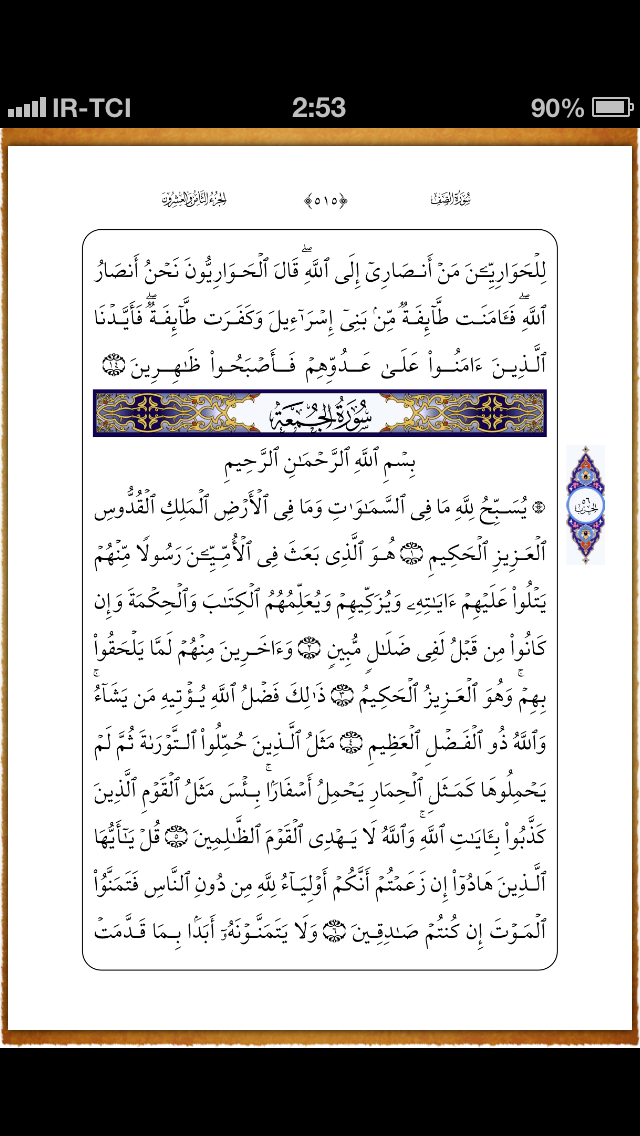 IR-TCI 2:53 90%
سُورَةُ الصَّفِّ ﴿٥١٥﴾ الجُزءُ الثَّامِنُ وَالعِشرُونَ
لِلۡحَوَارِيِّـۧنَ مَنۡ أَنصَارِيٓ إِلَى ٱللَّهِۖ قَالَ ٱلۡحَوَارِيُّونَ نَحۡنُ أَنصَارُ
ٱللَّهِۖ فَـَٔامَنَت طَّآئِفَةٞ مِّنۢ بَنِيٓ إِسۡرَٰٓءِيلَ وَكَفَرَت طَّآئِفَةٞۖ فَأَيَّدۡنَا
ٱلَّذِينَ ءَامَنُواْ عَلَىٰ عَدُوِّهِمۡ فَأَصۡبَحُواْ ظَٰهِرِينَ ١٤
سُورَةُ الجُمُعَةِ
بِسۡمِ ٱللَّهِ ٱلرَّحۡمَٰنِ ٱلرَّحِيمِ
۞ يُسَبِّحُ لِلَّهِ مَا فِي ٱلسَّمَٰوَٰتِ وَمَا فِي ٱلۡأَرۡضِ ٱلۡمَلِكِ ٱلۡقُدُّوسِ
ٱلۡعَزِيزِ ٱلۡحَكِيمِ ١ هُوَ ٱلَّذِي بَعَثَ فِي ٱلۡأُمِّيِّـۧنَ رَسُولٗا مِّنۡهُمۡ
يَتۡلُواْ عَلَيۡهِمۡ ءَايَٰتِهِۦ وَيُزَكِّيهِمۡ وَيُعَلِّمُهُمُ ٱلۡكِتَٰبَ وَٱلۡحِكۡمَةَ وَإِن
كَانُواْ مِن قَبۡلُ لَفِي ضَلَٰلٖ مُّبِينٖ ٢ وَءَاخَرِينَ مِنۡهُمۡ لَمَّا يَلۡحَقُواْ
بِهِمۡۚ وَهُوَ ٱلۡعَزِيزُ ٱلۡحَكِيمُ ٣ ذَٰلِكَ فَضۡلُ ٱللَّهِ يُؤۡتِيهِ مَن يَشَآءُۚ
وَٱللَّهُ ذُو ٱلۡفَضۡلِ ٱلۡعَظِيمِ ٤ مَثَلُ ٱلَّذِينَ حُمِّلُواْ ٱلتَّوۡرَىٰةَ ثُمَّ لَمۡ
يَحۡمِلُوهَا كَمَثَلِ ٱلۡحِمَارِ يَحۡمِلُ أَسۡفَارَۢاۚ بِئۡسَ مَثَلُ ٱلۡقَوۡمِ ٱلَّذِينَ
كَذَّبُواْ بِـَٔايَٰتِ ٱللَّهِۚ وَٱللَّهُ لَا يَهۡدِي ٱلۡقَوۡمَ ٱلظَّٰلِمِينَ ٥ قُلۡ يَٰٓأَيُّهَا
ٱلَّذِينَ هَادُوٓاْ إِن زَعَمۡتُمۡ أَنَّكُمۡ أَوۡلِيَآءُ لِلَّهِ مِن دُونِ ٱلنَّاسِ فَتَمَنَّوُاْ
ٱلۡمَوۡتَ إِن كُنتُمۡ صَٰدِقِينَ ٦ وَلَا يَتَمَنَّوۡنَهُۥٓ أَبَدَۢا بِمَا قَدَّمَتۡ
٥٦
الحِزب